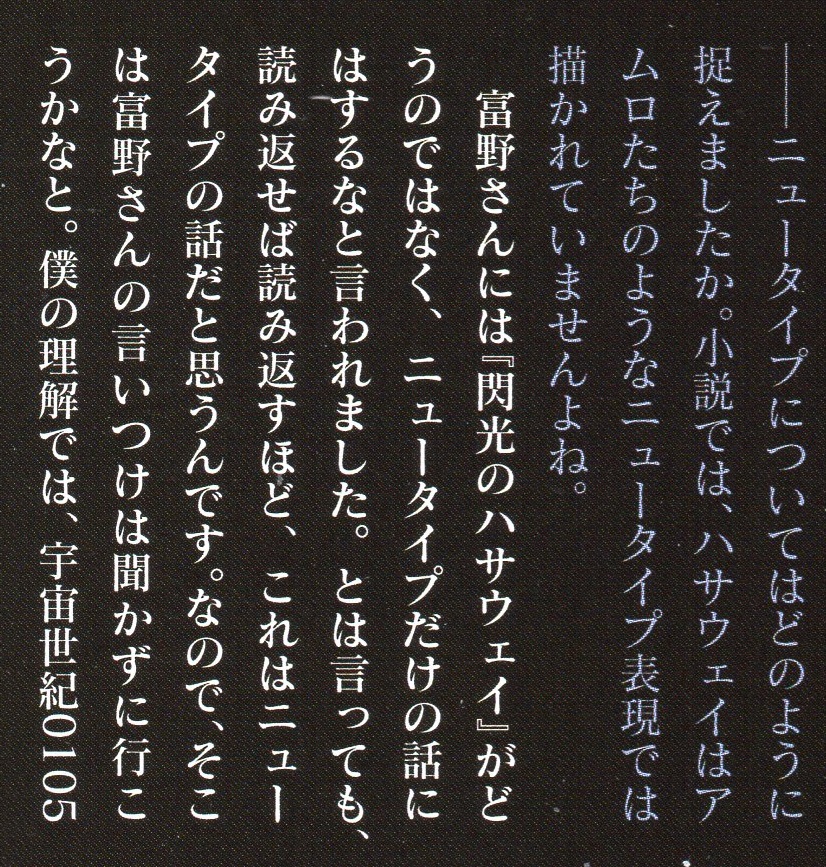 ――ニュータイプについてはどのように
捉えましたか。小説では、ハサウェイはア
ムロたちのようなニュータイプ表現では
描かれていませんよね。
　富野さんには『閃光のハサウェイ』がど
うのではなく、ニュータイプだけの話に
はするなと言われました。とは言っても、
読み返せば読み返すほど、これはニュー
タイプの話だと思うんです。なので、そこ
は富野さんの言いつけは聞かずに行こ
うかなと。僕の理解では、宇宙世紀0105